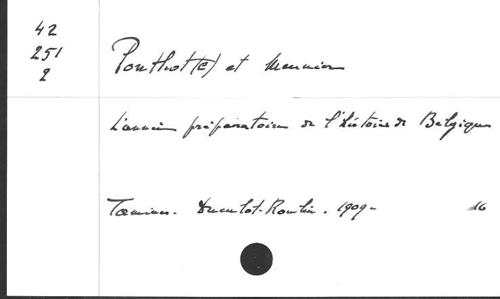 42
251
2
Ponthot(E) et Meunier
L'année préparatoire de l'histoire de Belgique
Tamines. Duculot-Roulin. 1909- 16